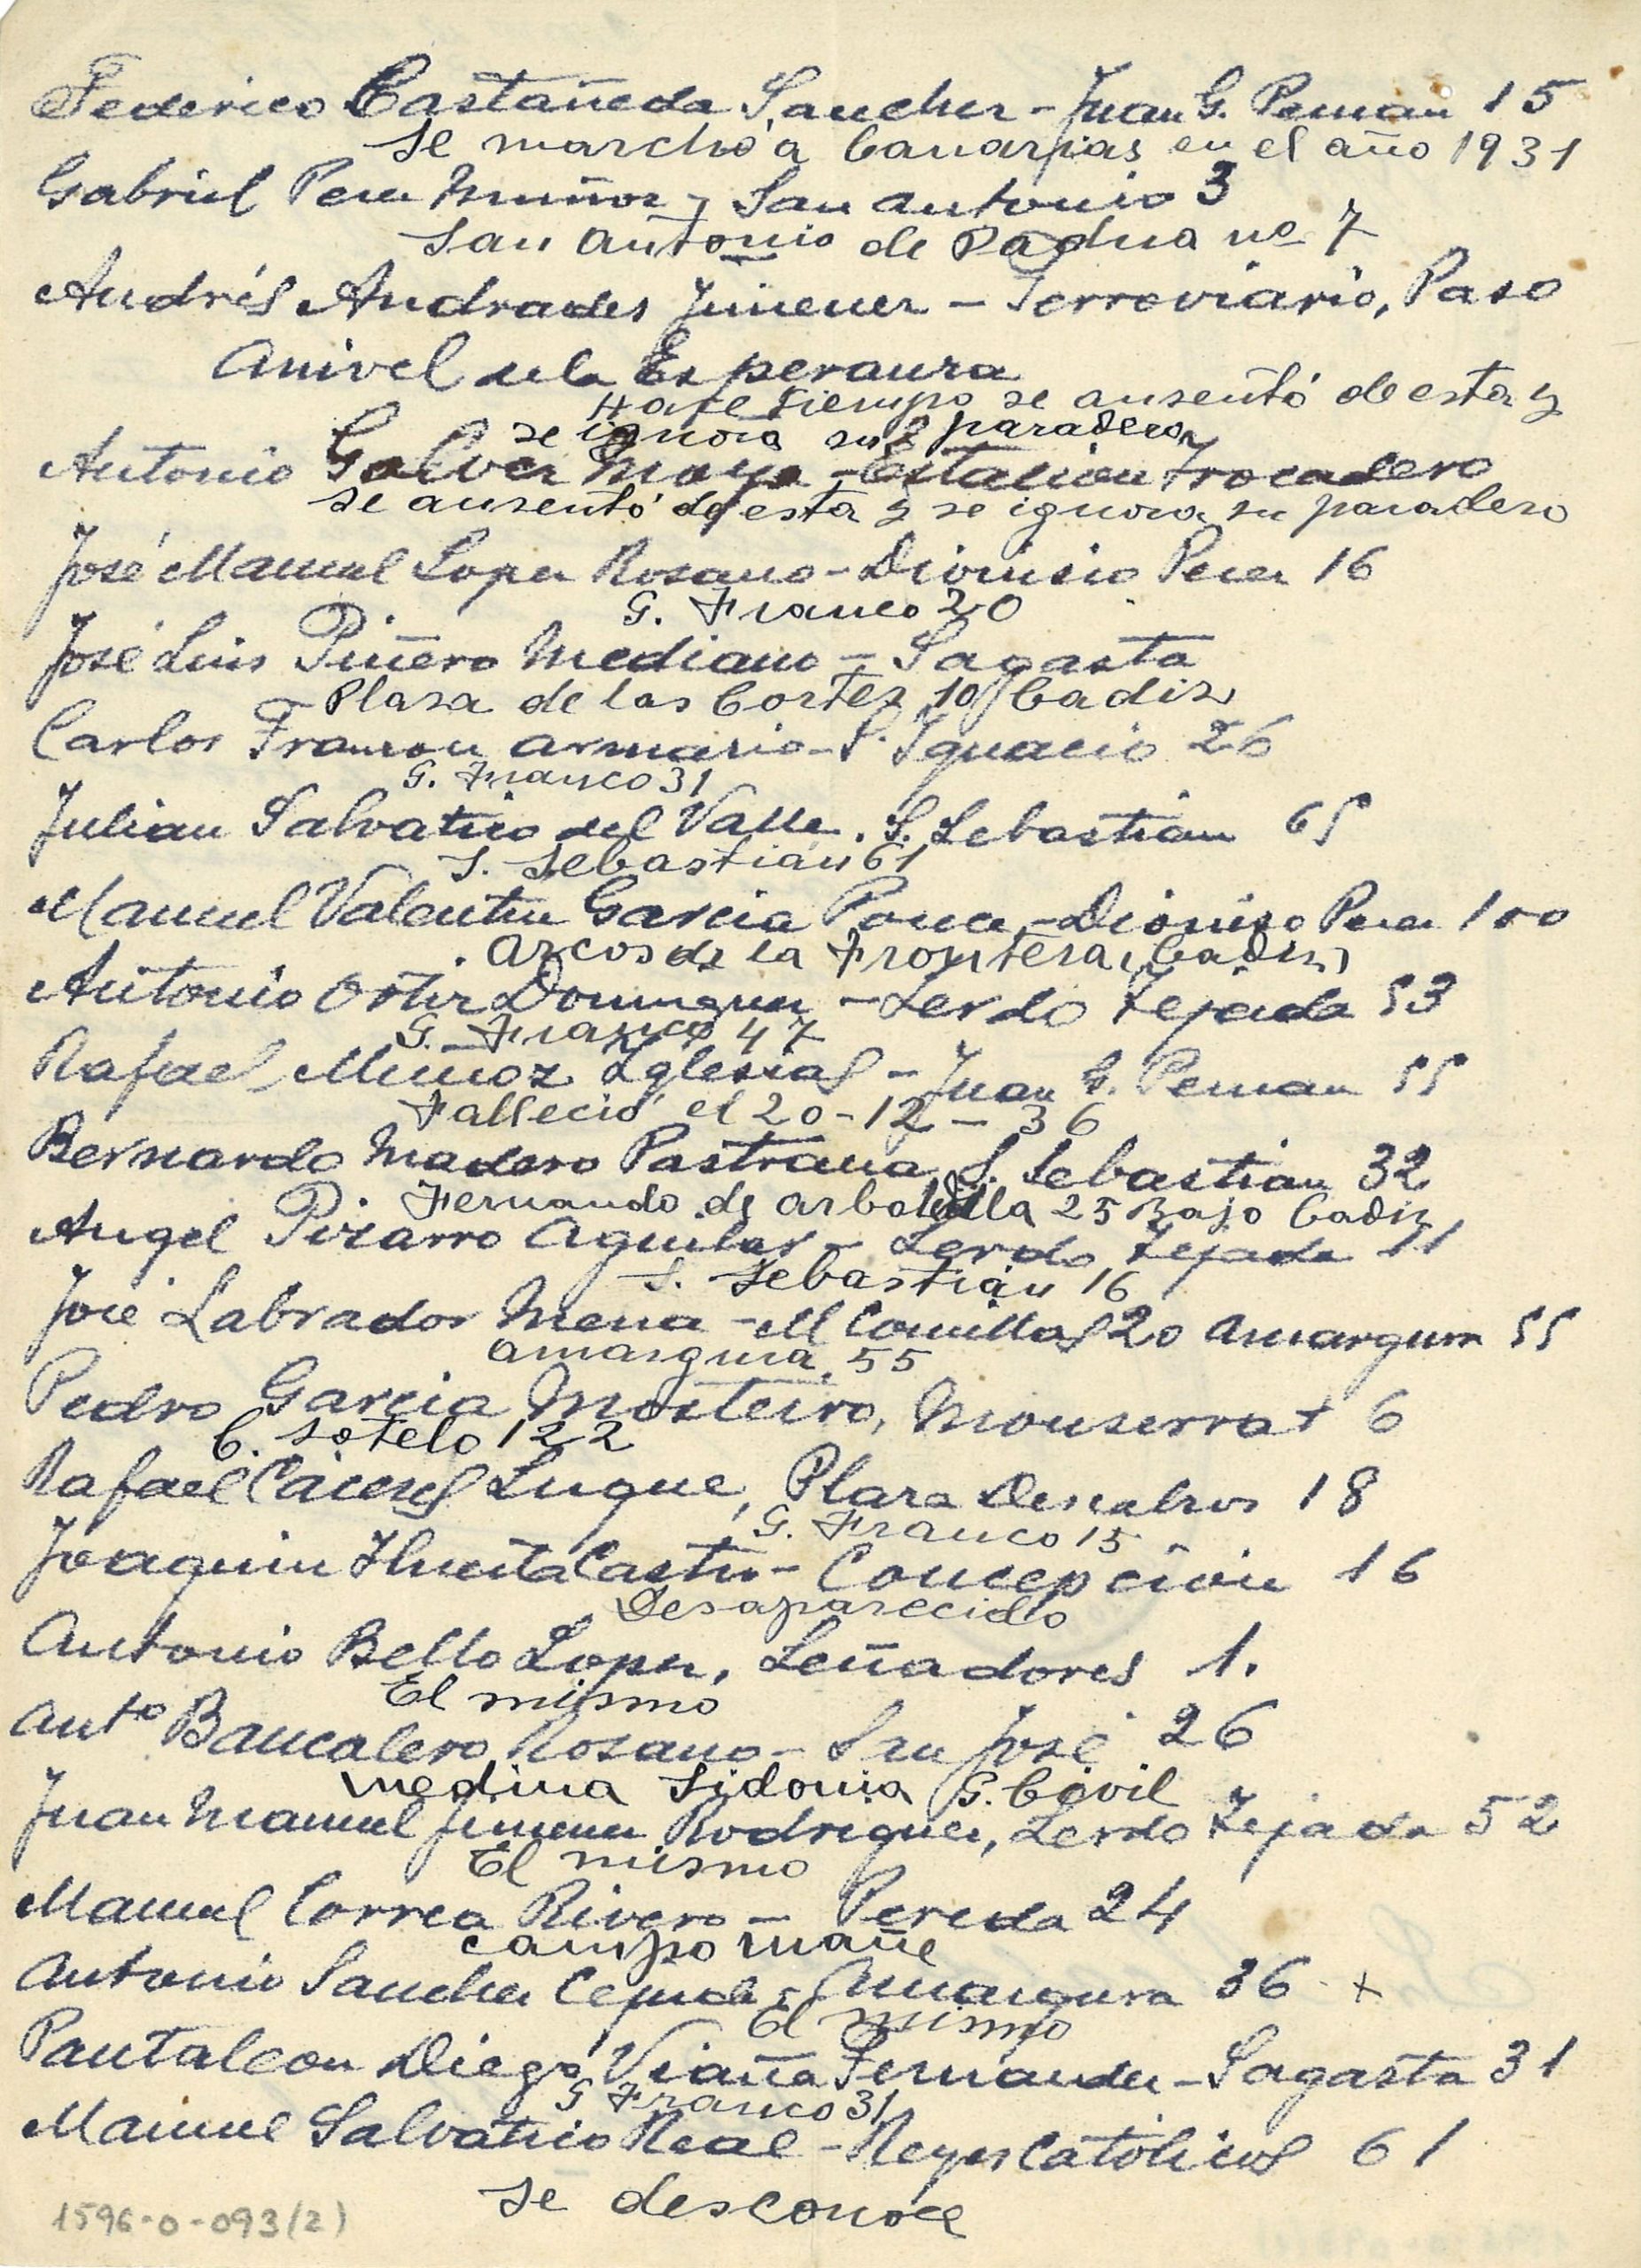 Federico Castañeda Sanchez - Juan G. Peman 15
Se marchó a Canarias en el año 1931
Gabriel Perez Muñoz - San Antonio 3
San Antonio de Padua nº 7
Andrés Andrades Jimenez - Ferroviario, Paso
Anivel de la Esperanza
Hace tiempo se ausentó de esta y
se ignora su paradero
Antonio Galvez Moya - Estacion Trocadero
se ausentó de esta y se ignora su paradero
José Manuel Lopez Rosano - Dionisio Perez 16
G. Franco 20
José Luis Piñero Mediano - Sagasta
Plaza de las Cortes 10 Cadiz
Carlos Franzon Armario - S. Ignacio 26
G. Franco 31
Julian Salvatico del Valle. S. Sebastian 65
S. Sebastián 61
Manuel Valentin Garcia Ponce - Dioniso Perez 100
Arcos de la Frontera, Cadiz,
Antonio Ortiz Dominguez - Lerdo Tejada 53
G. Franco 47
Rafael Muñoz Iglesias - Juan G. Peman 55
Falleció el 20-12-36
Bernardo Madero Pastrana, S. Sebastian 32
Fernando de arbolella 25 Bajo Cadiz
Angel Pizarro Aguilar - Lerdo Tejada 11
S. Sebastián 16
José Labrador Mena - M Comillas 20 Amargura 55
Amargura, 55
Pedro Garcia Mosteiro, Monserrat 6
C. Sotelo 122
Rafael Cáceres Luque, Plaza Descalzos 18
G. Franco 15
Joaquin Huerta Castro - Concepción 16
Desaparecido
Antonio Bello Lopez, Leñadores 1.
El mismo
Antº Bancalero Rosano - San José 26
Medina Sidonia G. Civil
Juan Manuel Jimenez Rodriguez, Lerdo Tejada 52
El mismo
Manuel Correa Rivero - Pereda 24
Campo Mañe
Antonio Sanchez Cejudo, Amargura 36 x
El mismo
Pantaleon Diego Viaña Fernandez - Sagasta 31
G Franco 31
Manuel Salvatico Real - Reyes Católicos 61
Se desconoce
1596-0-093(2)